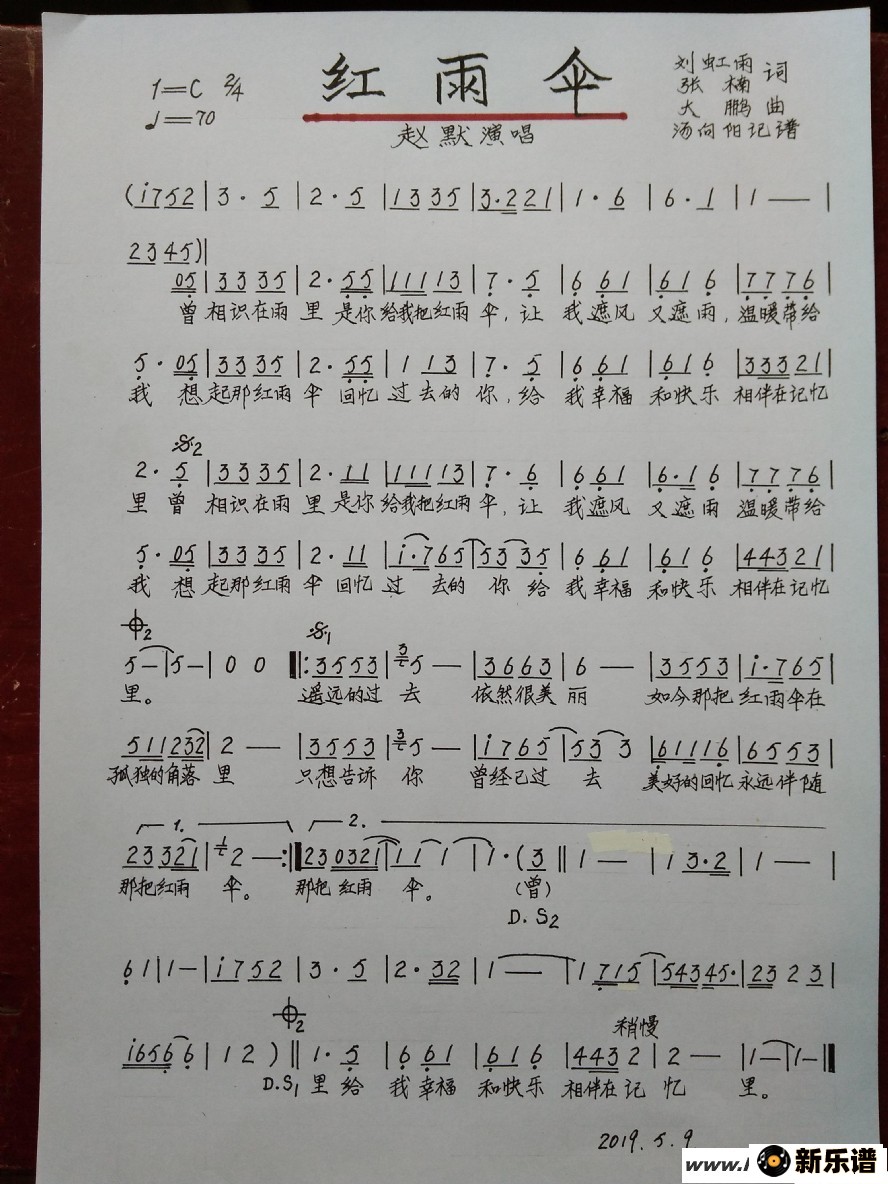 1=C 2/4
♩=70
红雨伞
赵默演唱
刘虹雨
张楠 词
大鹏曲
汤向阳记谱
(i752|3·5|2·5|1335|3·221|1·6|6·1|1—|
2345)|
05|3335|2·55|11113|7·5|661|616|7776|
曾 相识在雨 里 是你 给我把红雨 伞,让 我遮风 又遮雨,温暖带给
5·05|3335|2·55|1 13|7·5|661|616|33321|
我 想 起那红雨 伞 回忆 过去的 你,给 我幸福 和快乐 相伴在记忆
𝄋2
2·5|3335|2·11|11113|7·6|661|6·16|7776|
里曾 相识在雨 里 是你 给我把红雨 伞,让 我遮风 又遮雨 温暖带给
5·05|3335|2·11|i·765|5335|661|616|44321|
我 想 起那红雨 伞 回忆 过 去的 你 给 我幸福 和快乐 相伴在记忆
𝄌2 𝄋1
5—|5—|0 0‖:3553|3 5—|3663|6—|3553|i·765|
里。 遥远的过 去 依然很美 丽 如今那把 红雨伞在
511232|2—|3553|3 5—|i765|53 3|61116|6553|
孤独的角落 里 只想告诉 你 曾经已过 去 美好的回忆 永远伴随
1. 2.
23321|1 2—:‖230321|11 1|1·(3‖1—|13·2|1—|
那把红雨 伞。 那把红雨 伞。 (曾)
D.S2
61|1—|i752|3·5|2·32|1—|1715|54345·|23 23|
𝄌2 稍慢
i6566|12)‖1·5|661|616|4432|2—|1—|1—‖
D.S1 里给 我幸福 和快乐 相伴在记 忆 里。
2019.5.9
www.
新乐谱